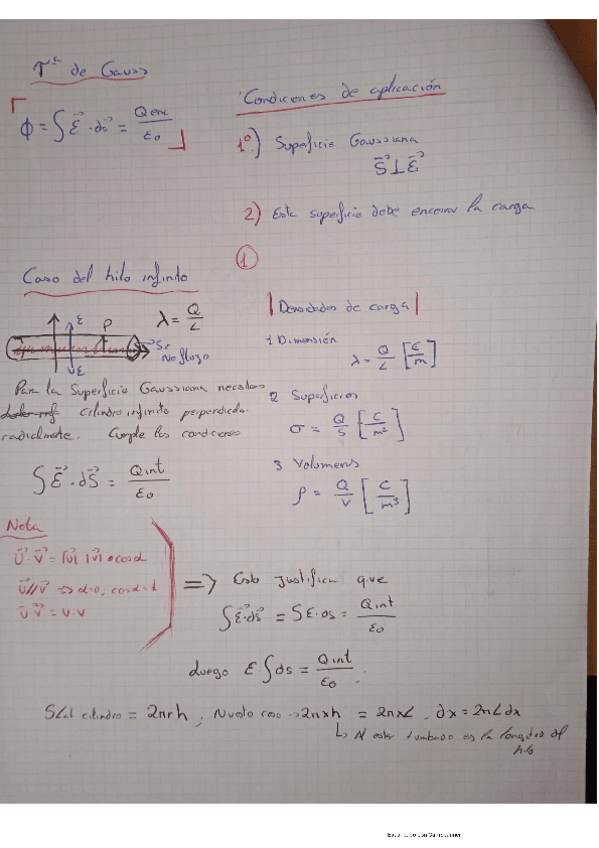 Tª de Gauss
ϕ = ∫ E⃗ · ds⃗ = Qenc / ε₀
Condiciones de aplicación
1º) Superficie Gaussiana
S⃗ ⊥ E⃗
2) Esta superficie debe encerrar la carga
1
Caso del hilo infinito
λ = Q / L
E
P
E
No flujo
Para la Superficie Gaussiana
cilindro infinito
radialmente. Cumple las condiciones
∫ E⃗ · dS⃗ = Qint / ε₀
Densidades de carga
1 Dimensión
λ = Q / L [C / m]
2 Superficies
σ = Q / S [C / m²]
3 Volumenes
ρ = Q / V [C / m³]
Nota
U⃗ · V⃗ = |U| |V| · cos α
U⃗ // V⃗ ⇒ α=0, cos α = 1
U⃗ · V⃗ = U · V
⇒ Esto Justifica que
∫ E⃗ · ds⃗ = ∫ E · ds = Qint / ε₀
Luego E · ∫ ds = Qint / ε₀ .
cilindro = 2πrh, Nuestro caso → 2πxh = 2πxL . dx = 2πLdx
↳ Al estar tumbado es la longitud del
hilo